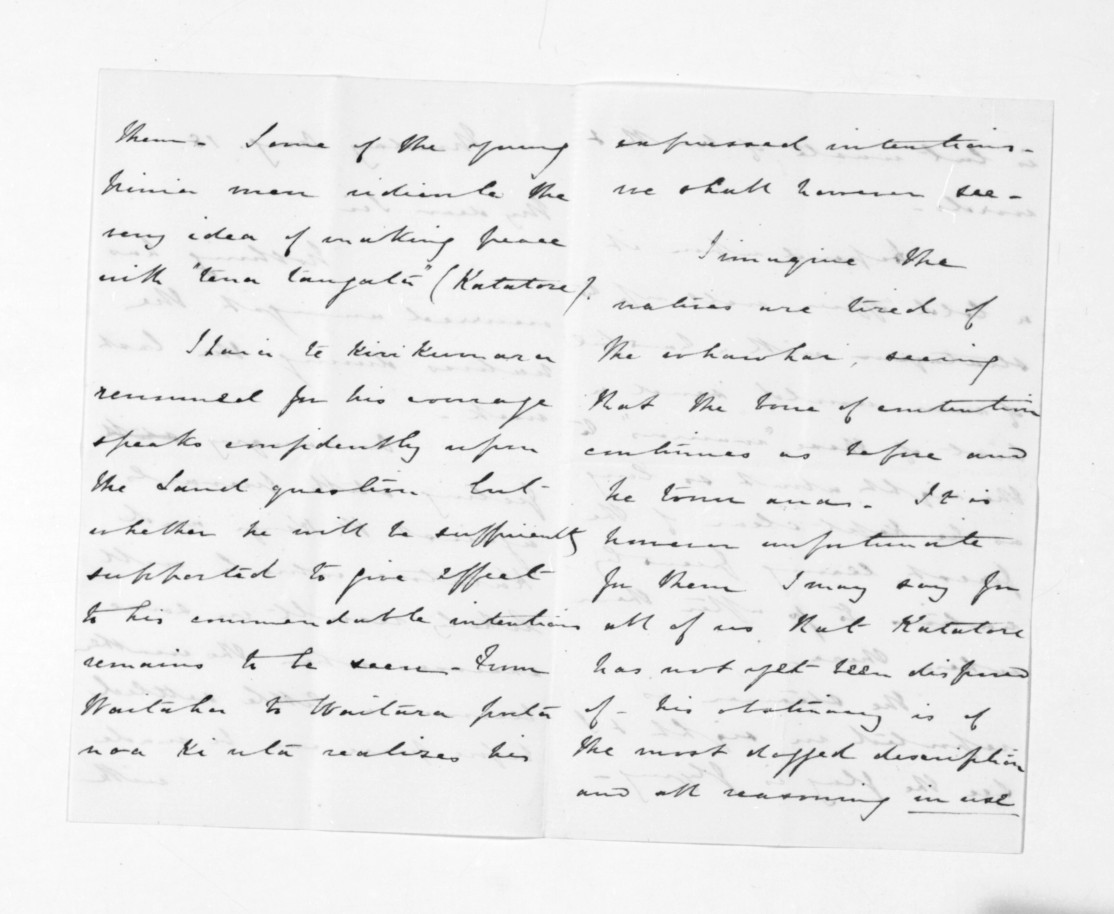 them - Some of the young
Ninia men ridicule the
very idea of making peace
with "tena tangata" (Katatore).
Ihaia te Kirikumara
renowned for his courage
speaks confidently upon
the Land question but
whether he will be sufficiently
supported to give effect
to his commendable intentions
remains to be seen - From
Waitaha to Waitara puta
noa ki uta realizes his
expressed intentions -
we shall however see -
I imagine the
natives are tired of
the whawhai, seeing
that the bone of contention
continues as before and
he tonu ana. It is
however unfortunate
for them I may say for
all of us that Katatore
has not yet been disposed
of - his obstinacy is of
the most dogged description
and all reasoning in use